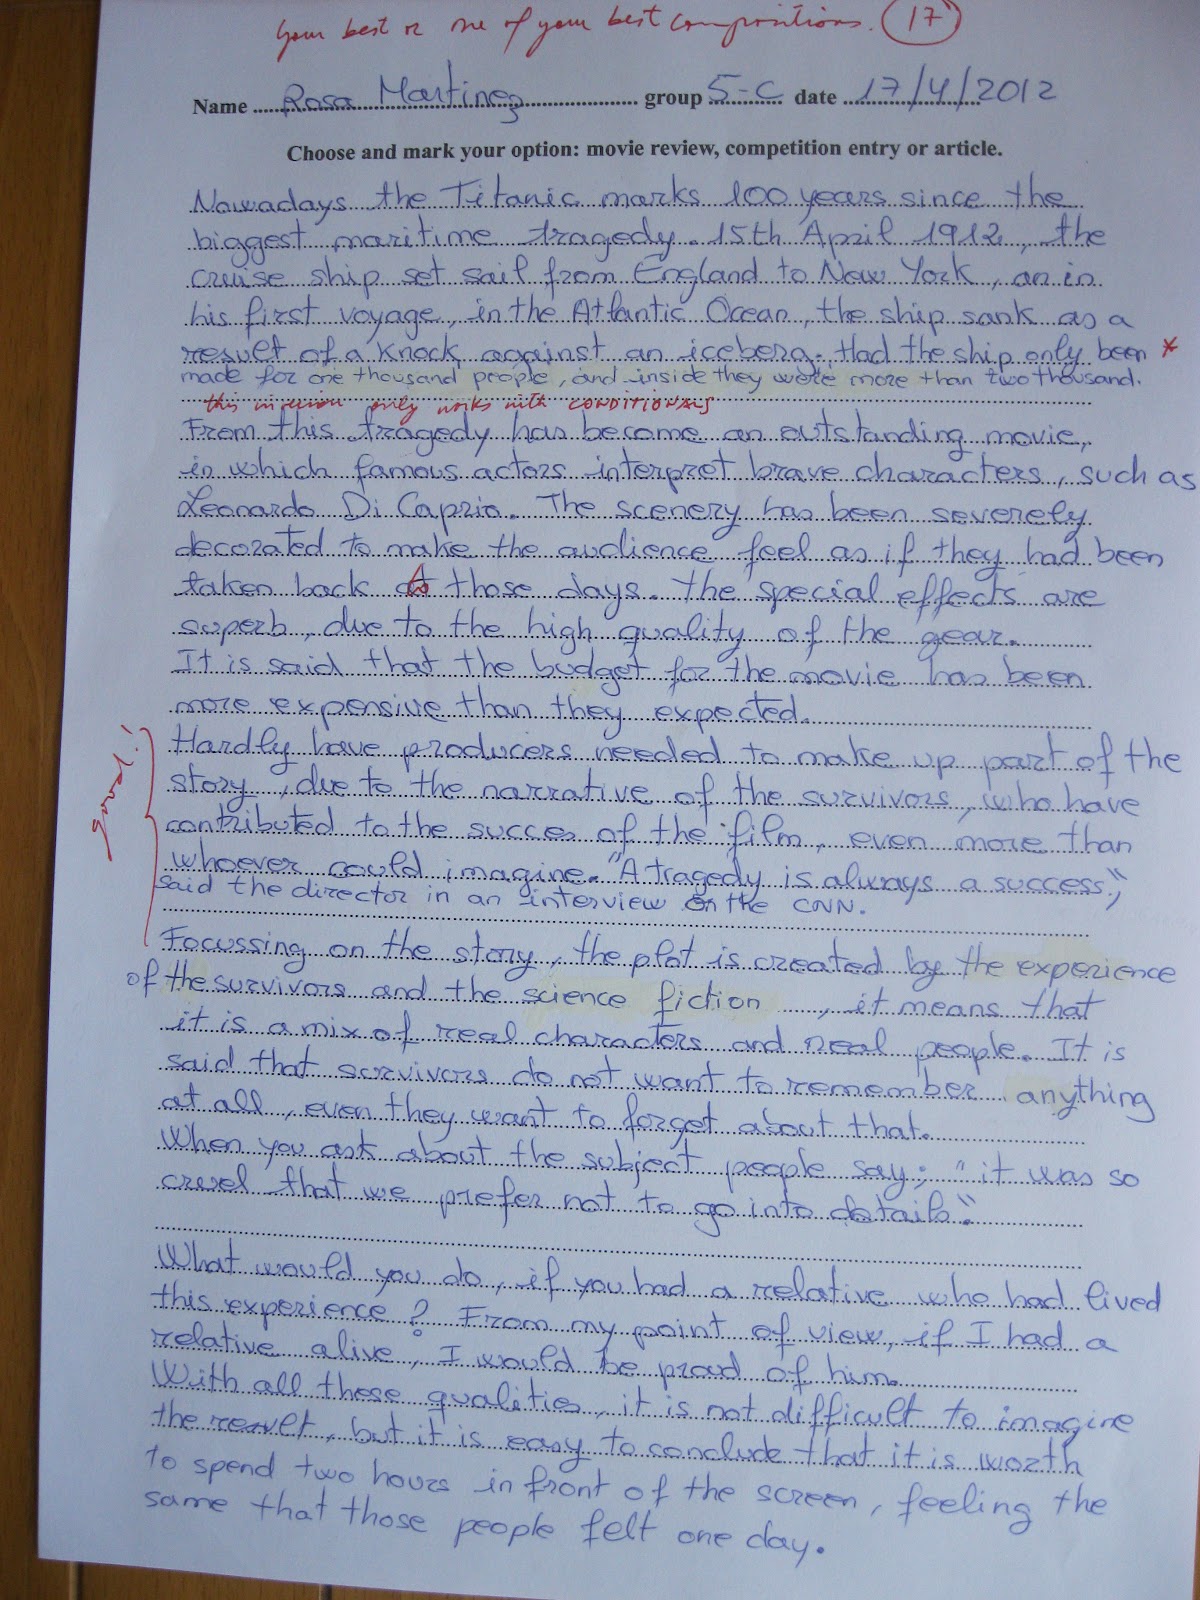 Your best or one of your best compositions. 17
Name Rosa Martinez group 5-C date 17/4/2012
Choose and mark your option: movie review, competition entry or article.
Nowadays the Titanic marks 100 years since the
biggest maritime tragedy. 15th April 1912, the
cruise ship set sail from England to New York, an in
his first voyage, in the Atlantic Ocean, the ship sank as a
result of a Knock against an iceberg. Had the ship only been *
made for one thousand people, and inside they were more than two thousand.
this inversion only works with CONDITIONALS
From this tragedy has become an outstanding movie,
in which famous actors interpret brave characters, such as
Leonardo Di Caprio. The scenery has been severely
decorated to make the audience feel as if they had been
taken back to those days. The special effects are
superb, due to the high quality of the gear.
It is said that the budget for the movie has been
more expensive than they expected.
good!
Hardly have producers needed to make up part of the
story, due to the narrative of the survivors, who have
contributed to the succes of the film, even more than
whoever could imagine. "A tragedy is always a success",
said the director in an interview on the CNN.
Focussing on the story, the plot is created by the experience
of the survivors and the science fiction, it means that
it is a mix of real characters and neal people. It is
said that survivors do not want to remember anything
at all, even they want to forget about that.
When you ask about the subject people say; "it was so
cruel that we prefer not to go into details".
What would you do, if you had a relative who had lived
this experience? From my point of view, if I had a
relative alive, I would be proud of him.
With all these qualities, it is not difficult to imagine
the result, but it is easy to conclude that it is worth
to spend two hours in front of the screen, feeling the
same that those people felt one day.